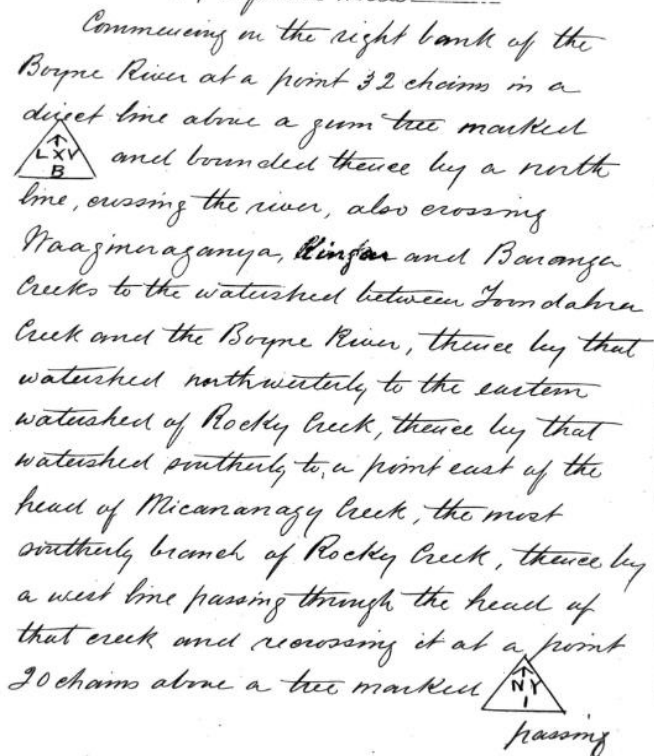 Commencing on the right bank of the
Boyne River at a point 32 chains in a
direct line above a gum tree marked
↑
L X V
B
and bounded thence by a north
line, crossing the river, also crossing
and Baranga
Creeks to the watershed between
Creek and the Boyne River, thence by that
watershed northwesterly to the eastern
watershed of Rocky Creek, thence by that
watershed southerly to, a point east of the
head of Micananagy Creek, the most
southerly branch of Rocky Creek, thence by
a west line passing through the head of
that creek and recrossing it at a point
20 chains above a tree marked
↑
N Y
1
passing